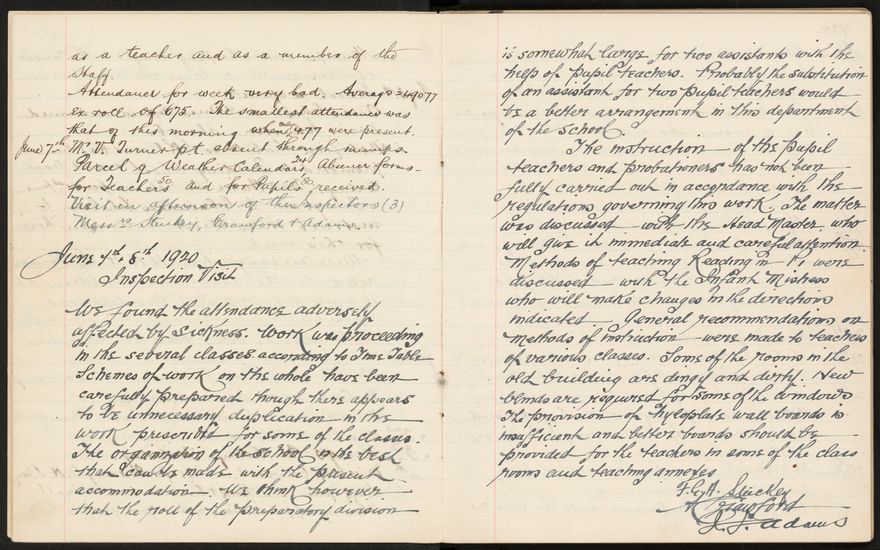 as a teacher and as a member of the
Staff.
Attendance for week very bad. Average = 490.77
ex roll of 675. The smallest attendance was
that of this morning when only 477 were present.
June 7th Mr V. Turner p.t. absent through mumps.
Parcel of Weather Calendars 24 Absence forms
for Teachers 50 and for Pupils 50 received.
Visit in afternoon of the Inspectors (3)
Messrs Stuckey, Crawford & Adams.
June 7th & 8th 1920
Inspection Visit
We found the attendance adversely
affected by sickness. Work was proceeding
in the several classes according to Time Table
Schemes of work on the whole have been
carefully prepared though there appears
to be unnecessary duplication in the
work prescribed for some of the classes.
The organization of the school is the best
that can be made with the present
accommodation. We think however
that the roll of the preparatory division
is somewhat large for two assistants with the
help of pupil teachers. Probably the substitution
of an assistant for two pupil teachers would
be a better arrangement in this department
of the school.
The instruction of the pupil
teachers and probationers has not been
fully carried out in accordance with the
regulations governing this work. The matter
was discussed with the Head Master, who
will give it immediate and careful attention.
Methods of teaching Reading in were
discussed with the Infant Mistress
who will make changes in the directions
indicated General recommendations on
methods of instruction were made to teachers
of various classes. Some of the rooms in the
old building are dingy and dirty. New
blinds are required for some of the windows
The provision of hyloplate wall boards is
insufficient and better boards should be
provided for the teachers in some of the class
rooms and teaching annexes
Stuckey
Crawford
Adams